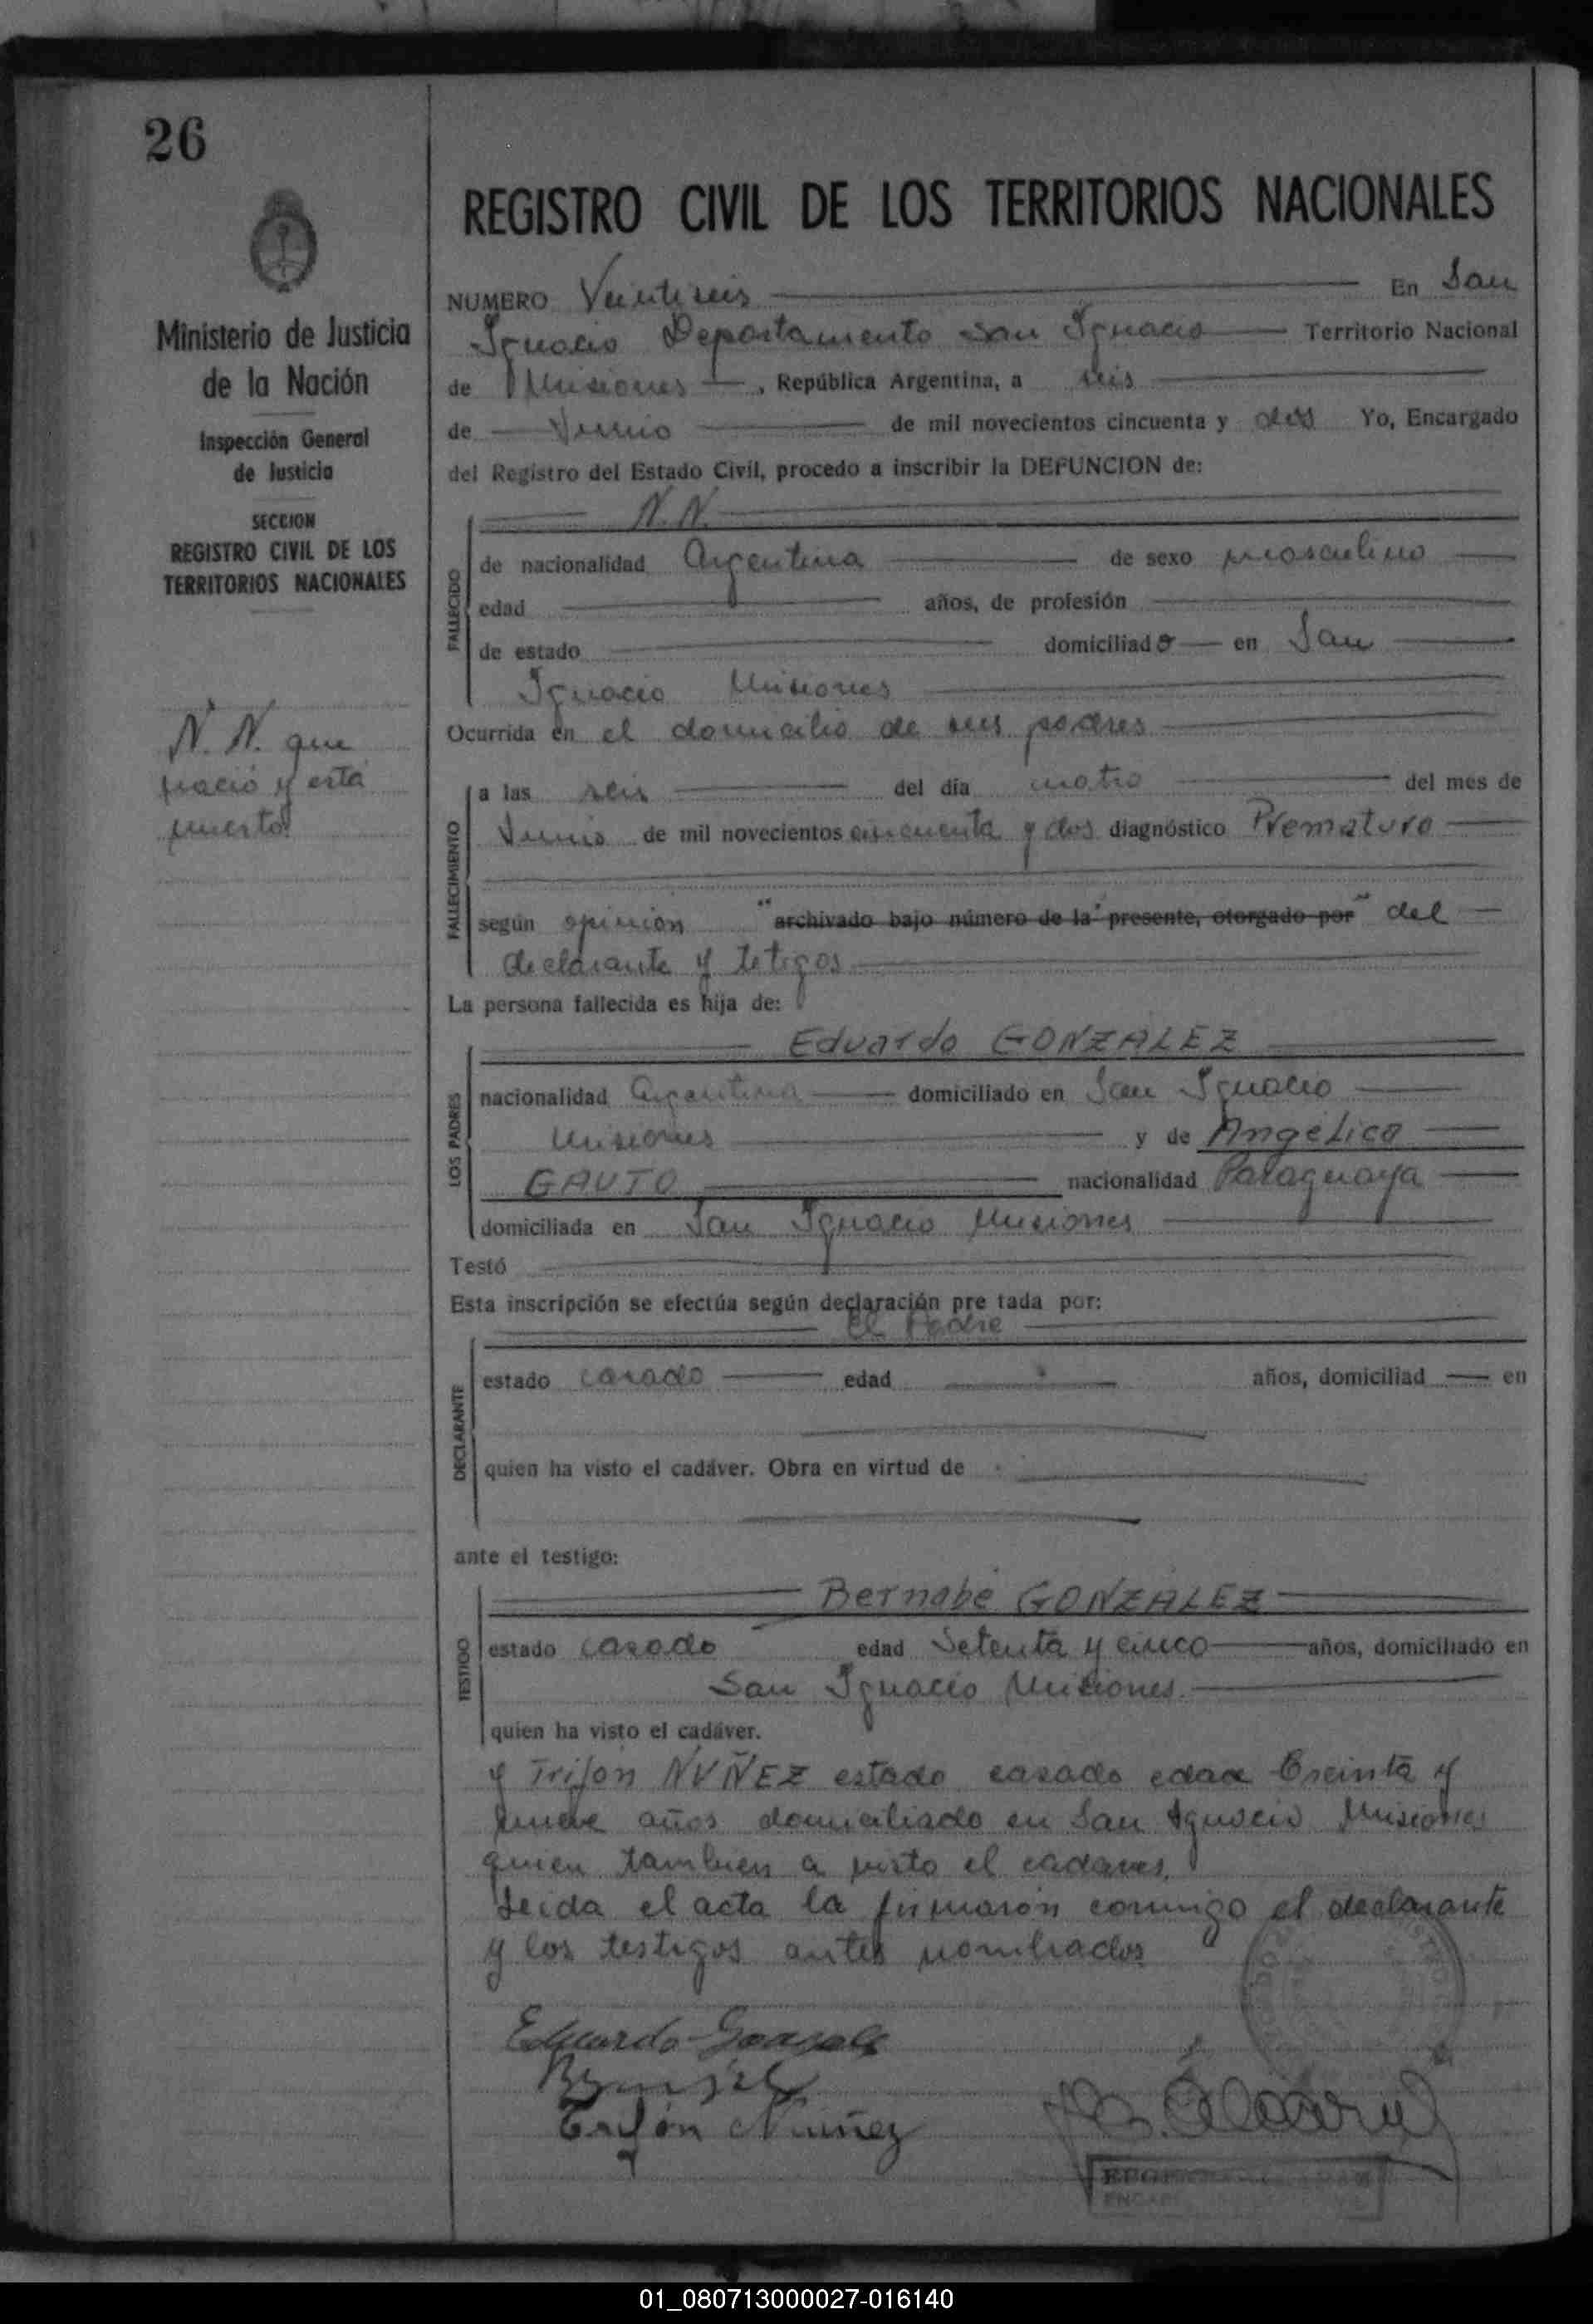 26
Ministerio de Justicia
de la Nación
Inspección General
de Justicia
SECCION
REGISTRO CIVIL DE LOS
TERRITORIOS NACIONALES
N. N. que
nació y está
muerto
REGISTRO CIVIL DE LOS TERRITORIOS NACIONALES
NUMERO Veintiseis En San
Ignacio Departamento San Ignacio Territorio Nacional
de Misiones, República Argentina, a seis
de Junio de mil novecientos cincuenta y dos Yo, Encargado
del Registro del Estado Civil, procedo a inscribir la DEFUNCION de:
N. N.
FALLECIDO
de nacionalidad Argentina de sexo masculino
edad años, de profesión
de estado domiciliado en San
Ignacio Misiones
Ocurrida en el domicilio de sus padres
FALLECIMIENTO
a las seis del día cuatro del mes de
Junio de mil novecientos cincuenta y dos diagnóstico Prematuro
según opinión "archivado bajo número de la presente, otorgado por" del
declarante y tetigos
La persona fallecida es hija de:
LOS PADRES
Eduardo GONZALEZ
nacionalidad Argentina domiciliado en San Ignacio
Misiones y de Angélica
GAUTO nacionalidad Paraguaya
domiciliada en San Ignacio Misiones
Testó
Esta inscripción se efectúa según declaración pre tada por:
El Padre
DECLARANTE
estado casado edad años, domiciliad en
quien ha visto el cadáver. Obra en virtud de
ante el testigo:
TESTIGO
Bernabé GONZALEZ
estado casado edad Setenta y cinco años, domiciliado en
San Ignacio Misiones.
quien ha visto el cadáver.
y Trifón NUÑEZ estado casado edad treinta y
nueve años domiciliado en San Ignacio Misiones
quien tambien a visto el cadaver.
Leida el acta la firmarón conmigo el declarante
y los testigos antes nombrados
Eduardo Gonzalez
Trifón Nuñez
01_080713000027-016140